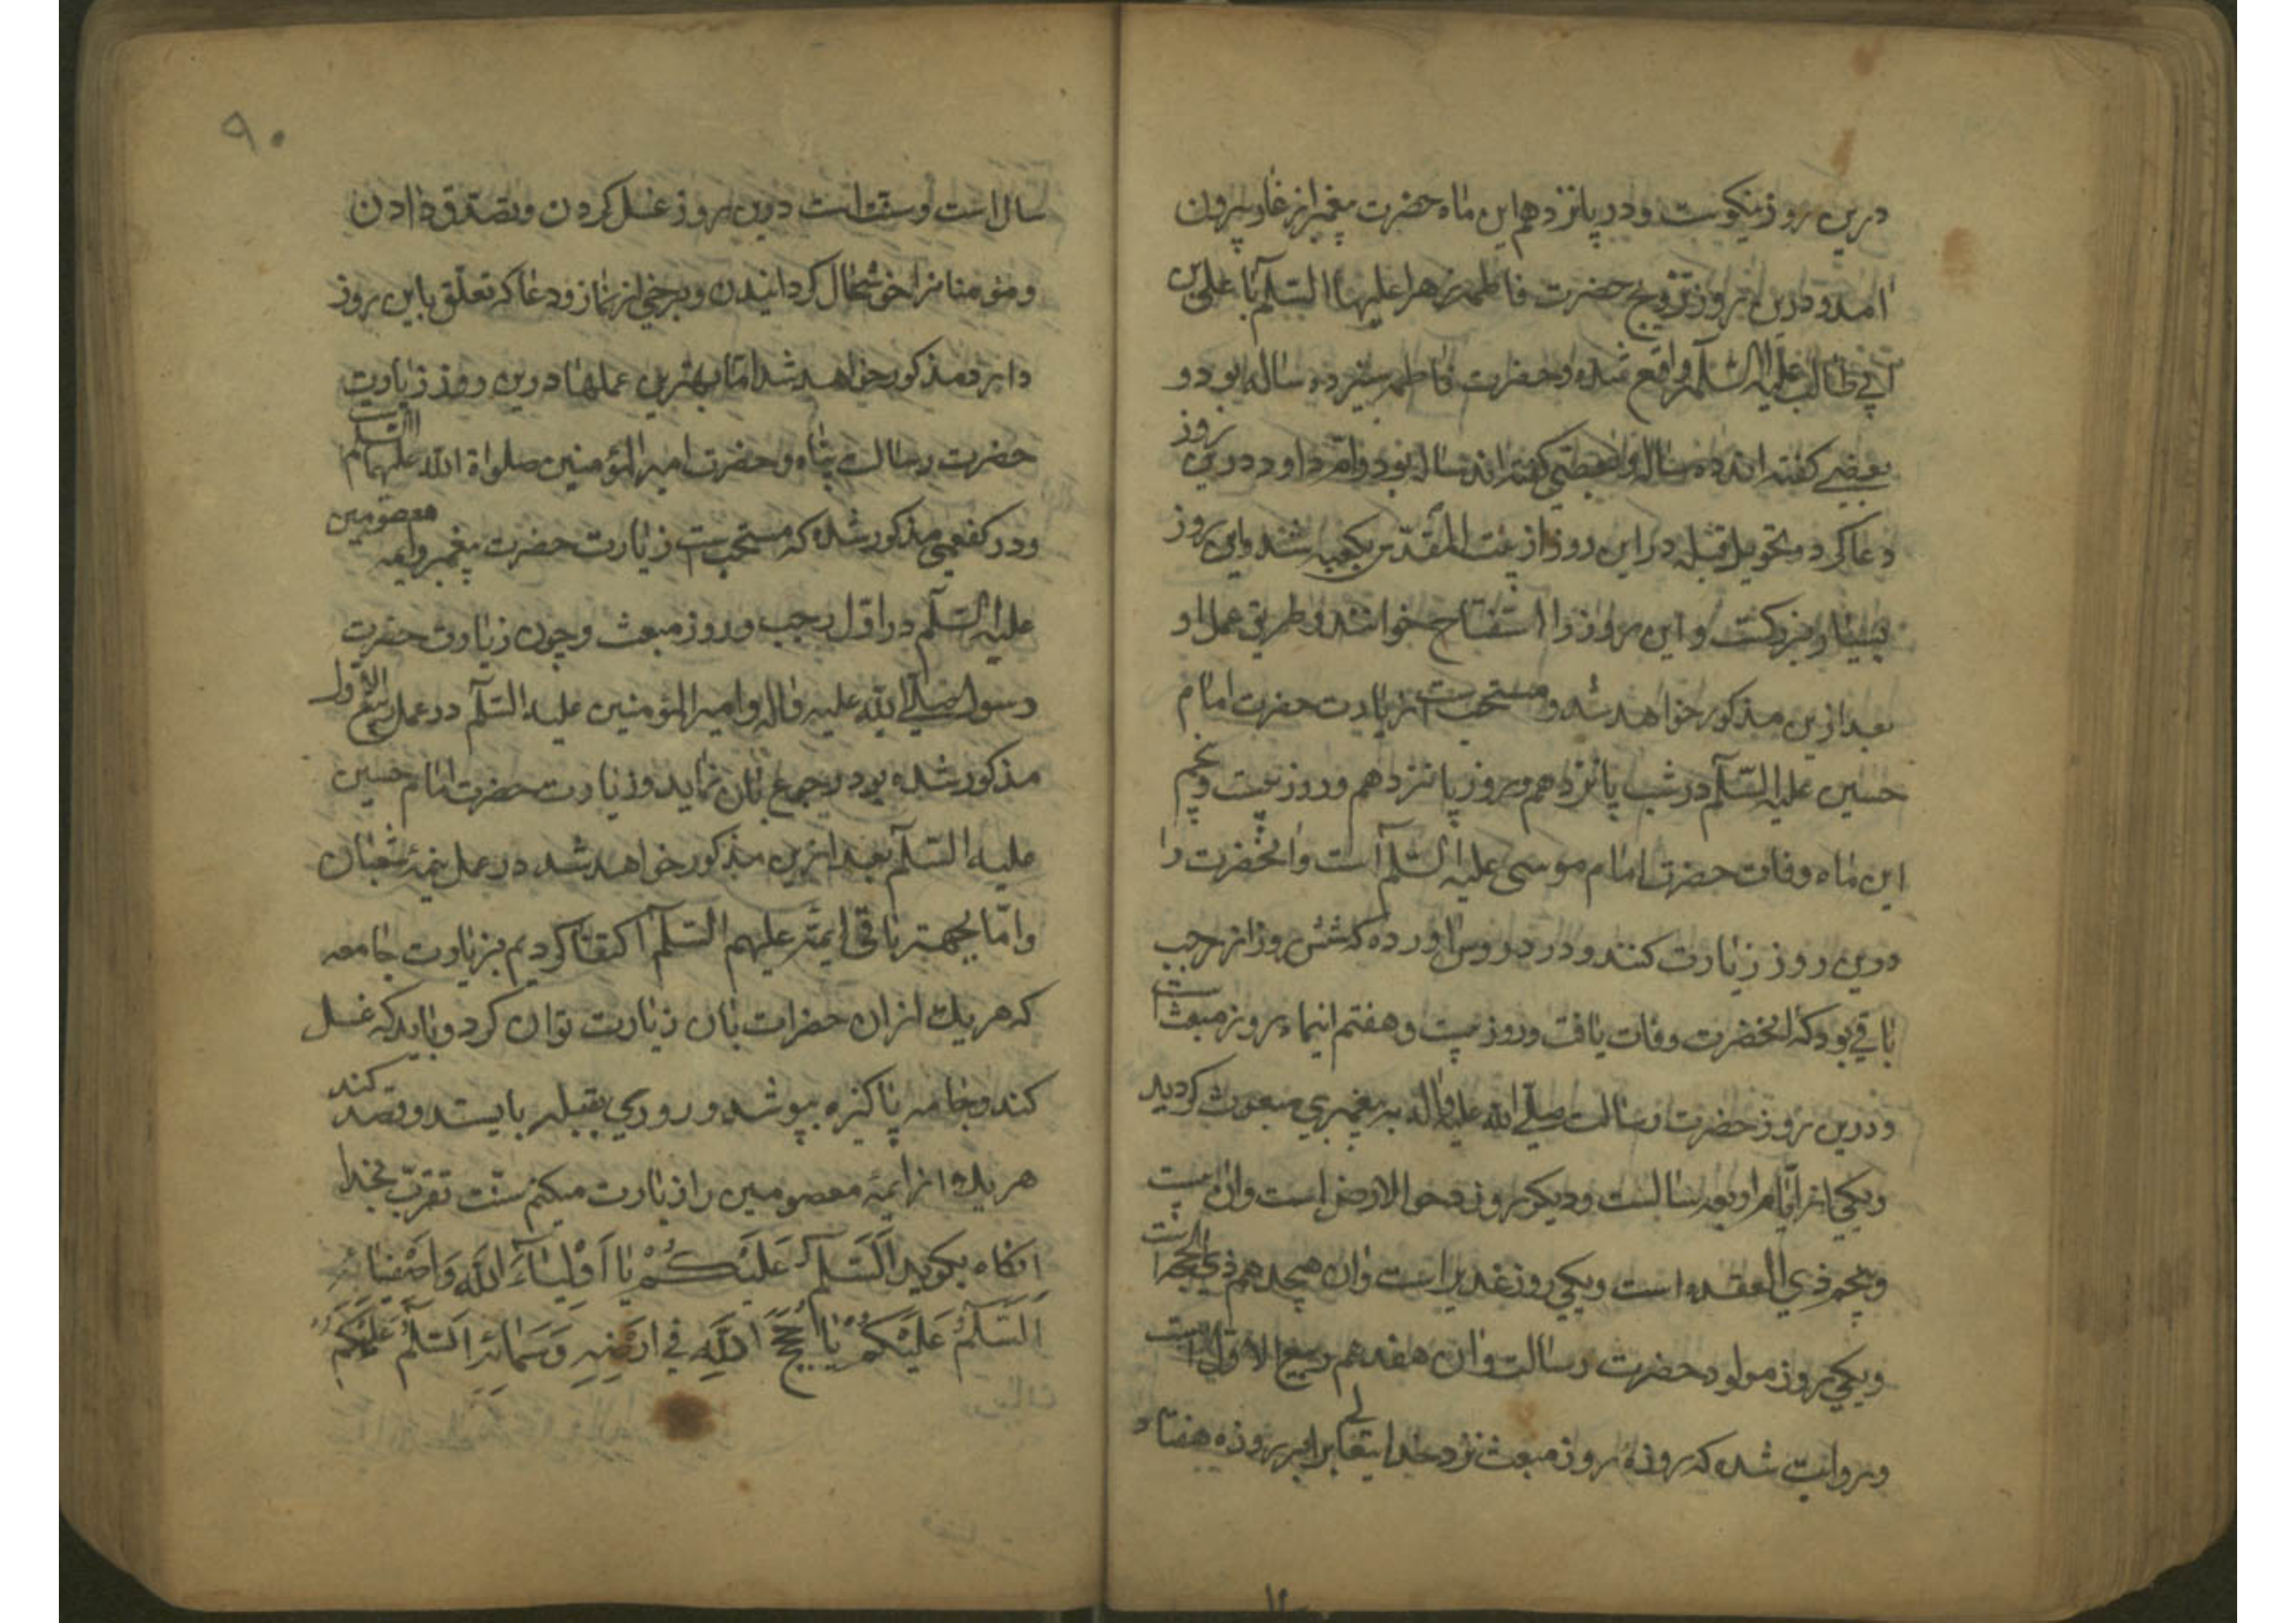 درین روز نیکوست و در پانزدهم این ماه حضرت پیغمبر از غار بیرون
آمد و درین روز تزویج حضرت فاطمه زهرا علیها السلام با علی بن
ابی طالب علیه السلام واقع شده و حضرت فاطمه سیزده ساله بود و
بعضی گفته اند ده ساله و بعضی گفته اند نه ساله بود و ام داود درین روز
دعا کرد و تحویل قبله در این روز از بیت المقدس بکعبه شد و این روز
بسیار بزرگست و این روز را استفتاح خوانند و طریق عمل او
بعد ازین مذکور خواهد شد و مستحب است زیارت حضرت امام
حسین علیه السلام در شب پانزدهم و روز پانزدهم و روز بیست و پنجم
این ماه وفات حضرت امام موسی علیه السلام است و آنحضرت را
درین روز زیارت کنند و در دروس آورده که شش روز از رجب
باقی بود که آنحضرت وفات یافت و روز بیست و هفتم اینماه روز مبعث است
و درین روز حضرت رسالت صلی الله علیه و آله به پیغمبری مبعوث گردید
و یکی از ایام اربعه سالست و دیگر روز دحو الارض است و آن بیست
و پنجم ذی القعده است و یکی روز غدیر است و آن هیجدهم ذی الحجه است
و یکی روز مولود حضرت رسالت و آن هفدهم ربیع الاول است
و روایت شده که روزهٔ روز مبعث نزد خدایتعالی برابر روزه هفتاد
۹۰
سال است و سنت است درین روز غسل کردن و تصدق دادن
و مؤمنانرا خوشحال گردانیدن و برخی از نماز و دعا که تعلق باین روز
دارد مذکور خواهد شد اما بهترین عملها درین روز زیارت
حضرت رسالت پناه و حضرت امیر المؤمنین صلواة الله علیهما السلام است
و در کفعمی مذکور شده که مستحب است زیارت حضرت پیغمبر و ایمه معصومین
علیه السلام در اول رجب و روز مبعث و چون زیارت حضرت
رسول صلی الله علیه و آله و امیر المؤمنین علیه السلام در عمل ربیع الاول
مذکور شده بود رجوع بآن نماید و زیارت حضرت امام حسین
علیه السلام بعد ازین مذکور خواهد شد در عمل نیمهٔ شعبان
و اما بجهت باقی ایمه علیهم السلام اکتفا کردیم بزیارت جامعه
که هر یک از آن حضرات بآن زیارت توان کرد و باید که غسل
کند و جامه پاکیزه بپوشد و روی بقبله بایستد و قصد کند
هر یک از ایمهٔ معصومین را زیارت میکنم سنت تقرب بخدا
آنگاه بگوید اَلسَّلٰمُ عَلَیْکُمْ یٰا اَوْلِیٰاءَ اللهِ وَ اَصْفِیٰائِهِ
اَلسَّلٰمُ عَلَیْکُمْ یٰا حُجَجَ اللهِ فی اَرْضِهِ وَ سَمٰائِهِ اَلسَّلٰمُ عَلَیْکُمْ